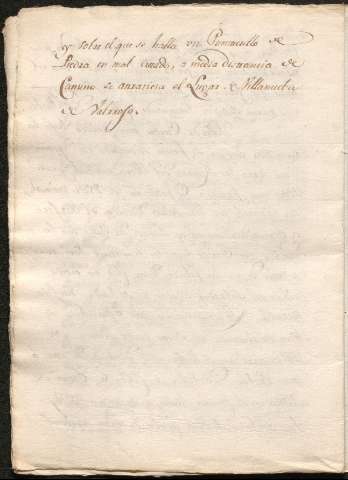 y sobre el que se halla un Pontecillo de
Piedra en mal estado, a media distancia de
Camino se atraviesa el Lugar de Villanueba
de Valrojo.